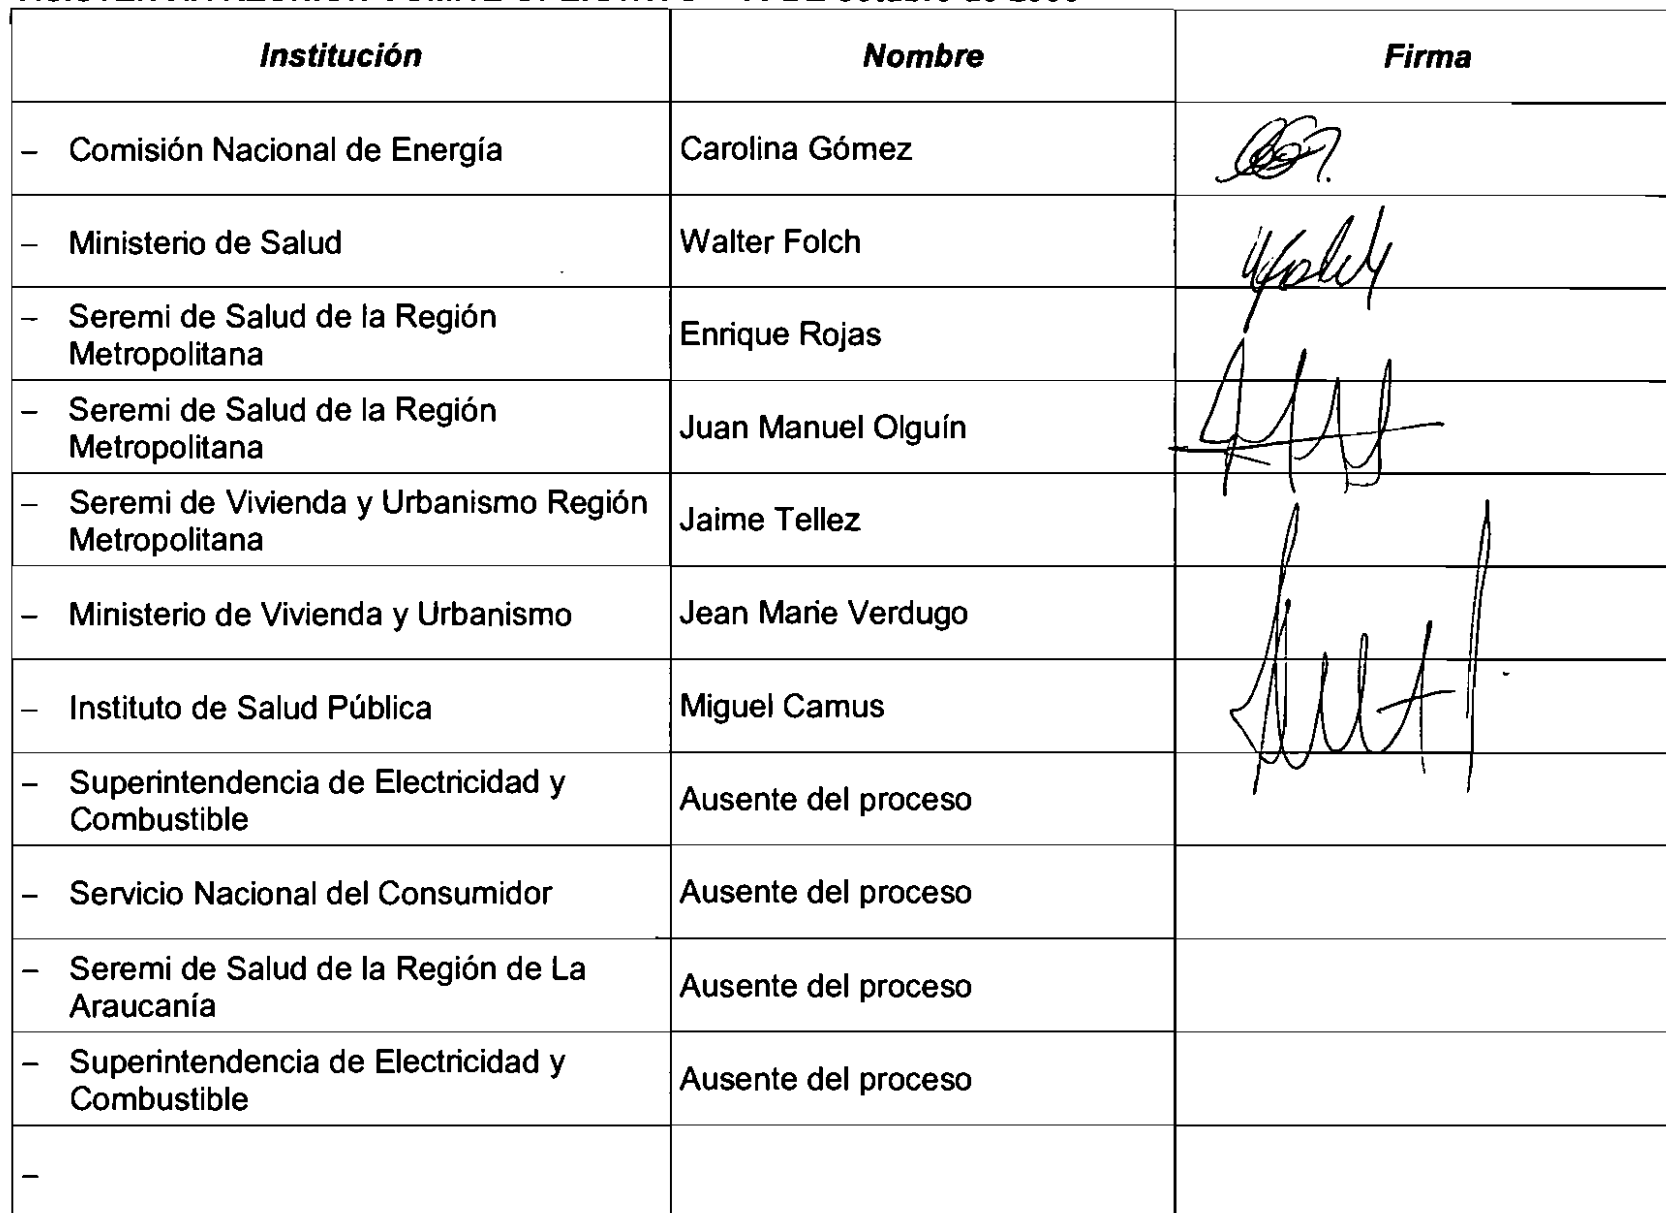 Institución Nombre Firma
– Comisión Nacional de Energía Carolina Gómez
– Ministerio de Salud Walter Folch
– Seremi de Salud de la Región
Metropolitana Enrique Rojas
– Seremi de Salud de la Región
Metropolitana Juan Manuel Olguín
– Seremi de Vivienda y Urbanismo Región
Metropolitana Jaime Tellez
– Ministerio de Vivienda y Urbanismo Jean Marie Verdugo
– Instituto de Salud Pública Miguel Camus
– Superintendencia de Electricidad y
Combustible Ausente del proceso
– Servicio Nacional del Consumidor Ausente del proceso
– Seremi de Salud de la Región de La
Araucanía Ausente del proceso
– Superintendencia de Electricidad y
Combustible Ausente del proceso
–